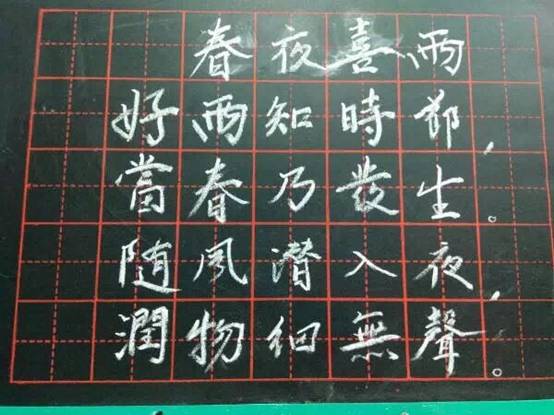 春夜喜雨
好雨知時節，
當春乃發生。
随風潜入夜，
潤物细無聲。